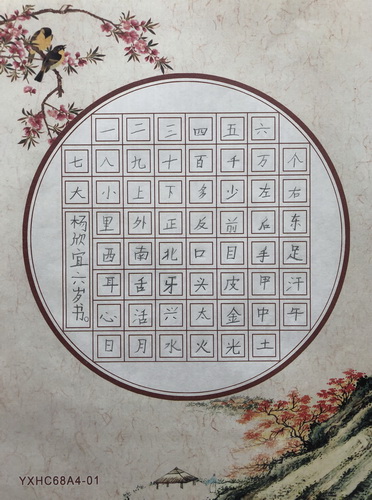 一二三四五六
七八九十百千万个
大小上下多少左右
里外正反前后东
西南北口目手足
耳舌牙头皮甲汗
心活兴太金中午
日月水火光土
杨欣宜六岁书。
YXHC68A4-01